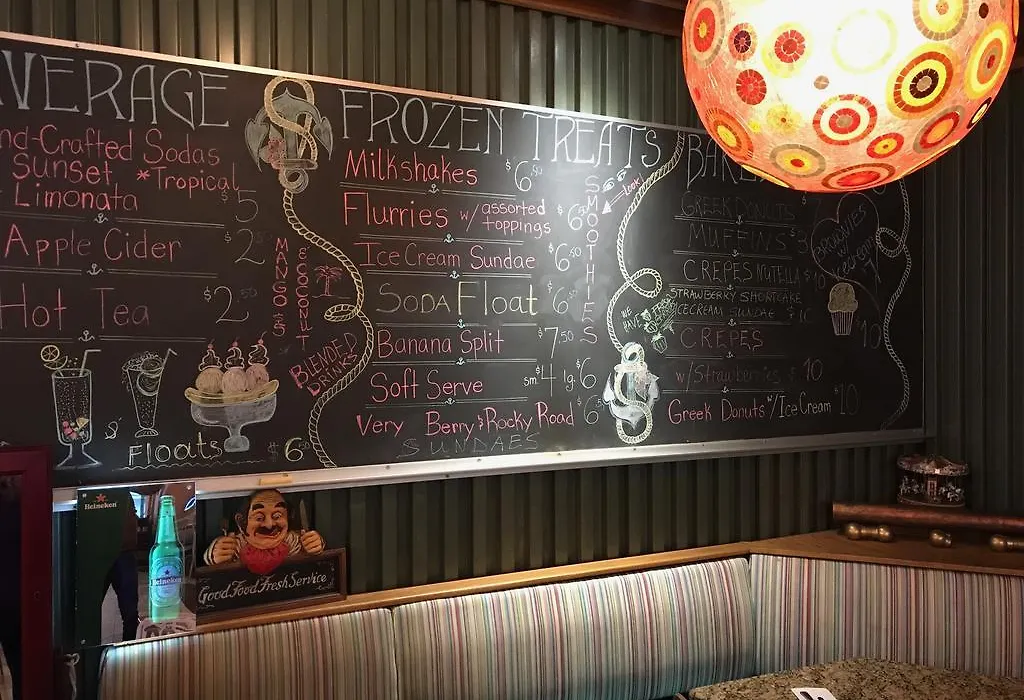 VERAGE
nd-Crafted Sodas
Sunset *Tropical
Limonata $5
Apple Cider $2.50
Hot Tea $2.50
MANGO'S
COCONUT
BLENDED
DRINKS
Floats $6
FROZEN TREATS
Milkshakes $6.50
Flurries w/ assorted
toppings $6.50
Ice Cream Sundae $6.50
SODA Float $6
Banana Split $7.50
Soft Serve sm. 4 lg. $6
Very Berry & Rocky Road $6
SUNDAES
SMOOTHIES
Look!
WE
HAVE
GREEK DONUTS
MUFFINS $3
CREPES NUTELLA $10
STRAWBERRY SHORTCAKE
ICECREAM SUNDAE $10
CREPES $10
w/Strawberries $10
Greek Donuts w/Ice Cream $10
BROWNIES
w/
Icecream
7
Heineken
Heineken
Good Food Fresh Service